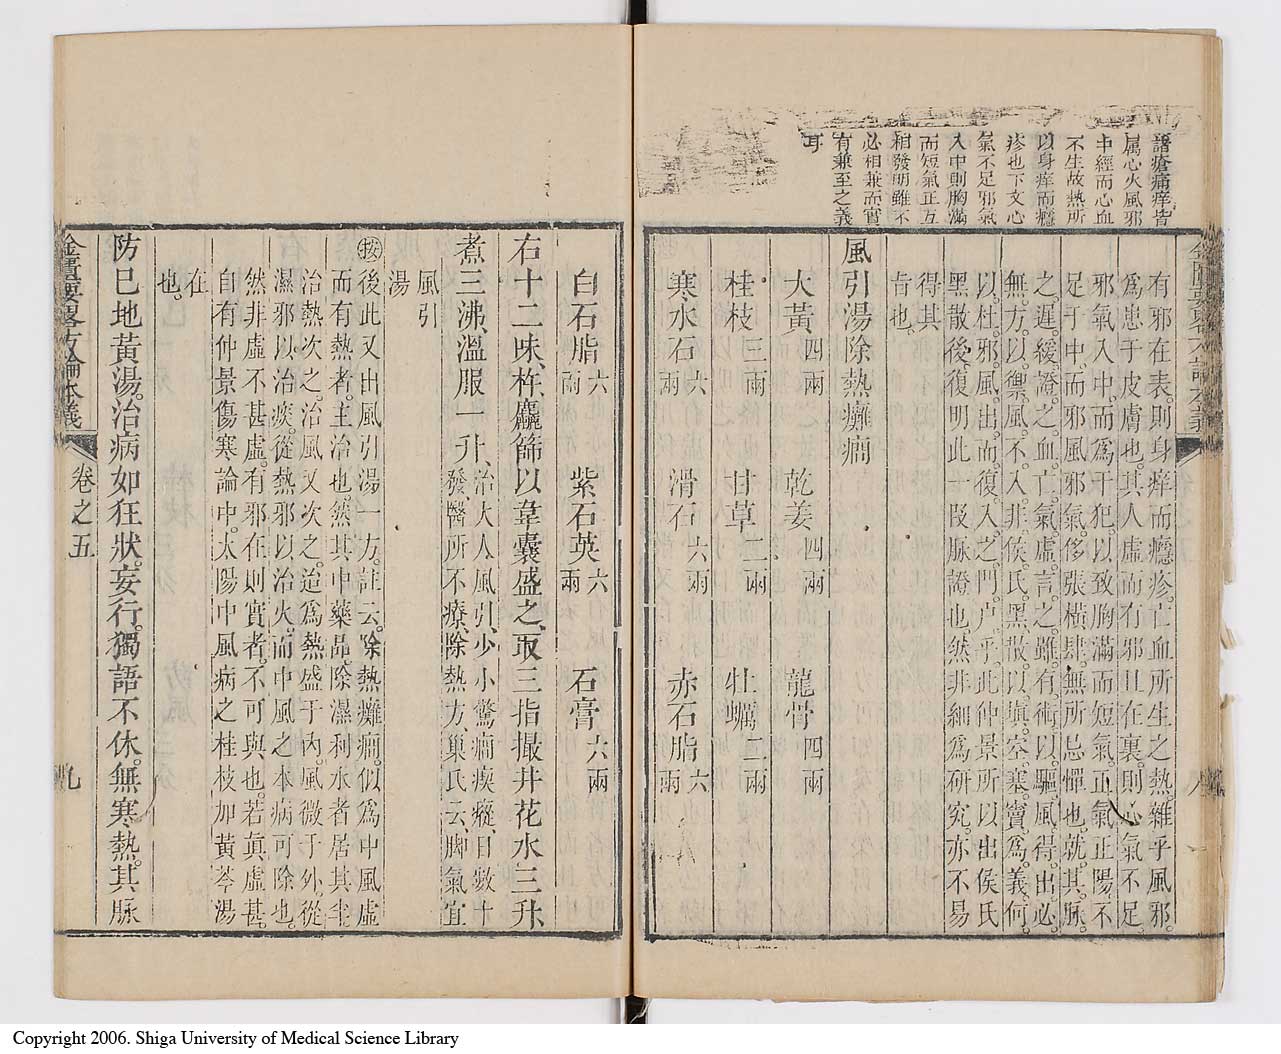 諸瘡痛痒皆
属心火風邪
中經而心血
不生故熱所
以身痒而癮
疹也下文心
氣不足邪氣
入中則胸滿
而短氣正互
相發明雖不
必相兼而實
有兼至之義
耳
有邪在表則身痒而癮疹亡血所生之熱雜乎風邪
爲患于皮膚也其人虛而有邪且在裏則心氣不足
邪氣入中而爲干犯以致胸滿而短氣正氣正陽不
足于中而邪風邪氣侈張橫肆無所忌憚也就其脉
之遲緩證之血亡氣虛言之雖有術以驅風得出必
無方以禦風不入非侯氏黑散以塡空塞竇爲義何
以杜邪風出而復入之門戶乎此仲景所以出侯氏
黑散後復明此一段脉證也然非細爲研究亦不易
得其
旨也
風引湯除熱癱癎
大黃四兩 乾姜四兩 龍骨四兩
桂枝三兩 甘草二兩 牡蠣二兩
寒水石六兩 滑石六兩 赤石脂六兩
白石脂六兩 紫石英六兩 石膏六兩
右十二味杵麤篩以韋囊盛之取三指撮井花水三升
煮三沸溫服一升治大人風引少小驚癎瘈瘲日數十
發醫所不療除熱方巢氏云脚氣宜
風引
湯
按後此又出風引湯一方註云除熱癱癎似爲中風虛
而有熱者主治也然其中藥品除濕利水者居其半
治熱次之治風又次之迨爲熱盛于內風微于外從
濕邪以治痰從熱邪以治火而中風之本病可除也
然非虛不甚虛有邪在則實者不可與也若眞虛甚
自有仲景傷寒論中太陽中風病之桂枝加黃芩湯
在
也
防己地黃湯治病如狂狀妄行獨語不休無寒熱其脉
金匱要畧方論本義 卷之五 九